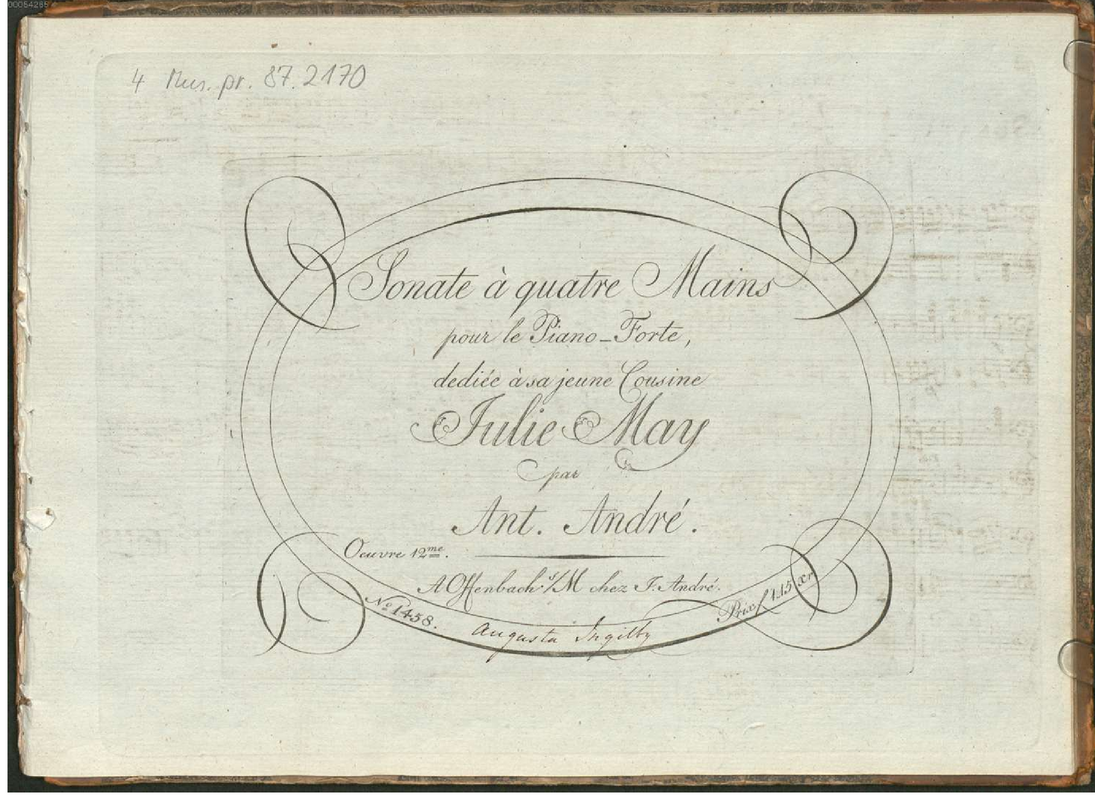 00054285
4 Mus. pr. 87. 2170
Sonate à quatre Mains
pour le Piano-Forte,
dediée à sa jeune Cousine
Julie May
par
Ant. André.
Oeuvre 12me.
A Offenbach s/M chez J. André.
No 1458.
Prix f 1.15 xr
Augusta Ingilby